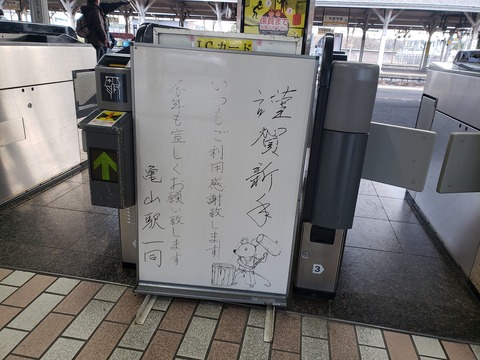 ICカード
謹賀新年
いつもご利用感謝致します
今年も宜しくお願い致します
亀山駅一同
3